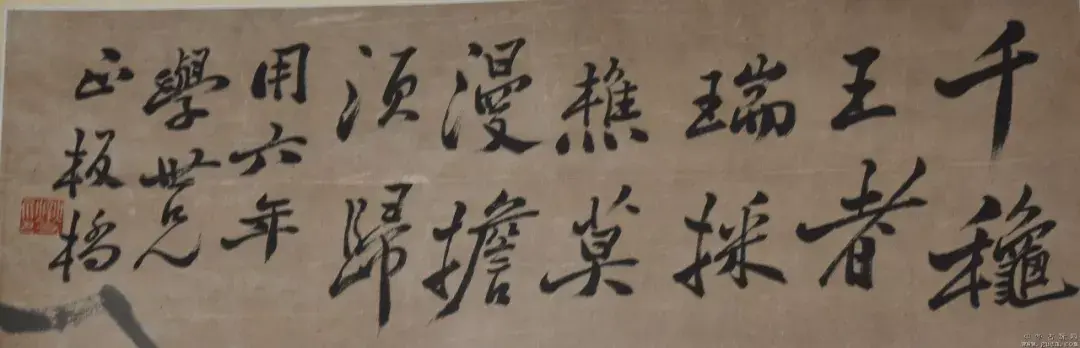 千穐
王者
瑞採
樵莫
漫擔
湏歸
用六年
學世兄
正板橋